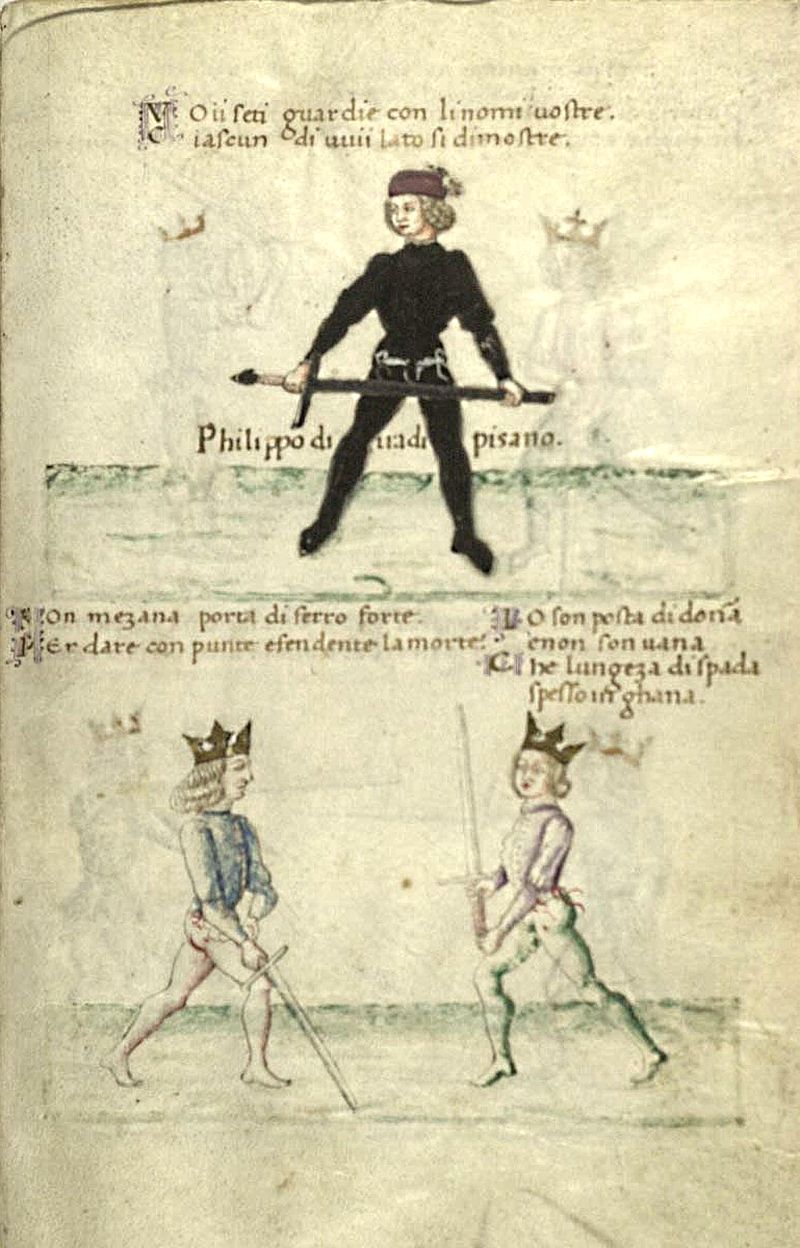 NOii seti guardie con li nomi uostre.
Ciascun di uuii lato si dimostre.
Philippo di uadi pisano.
SOn mezana porta di ferro forte.
PEr dare con punte efendente la morte.
IO son posta di dona
enon son uana
Che lungeza di spada
spesso inghana.